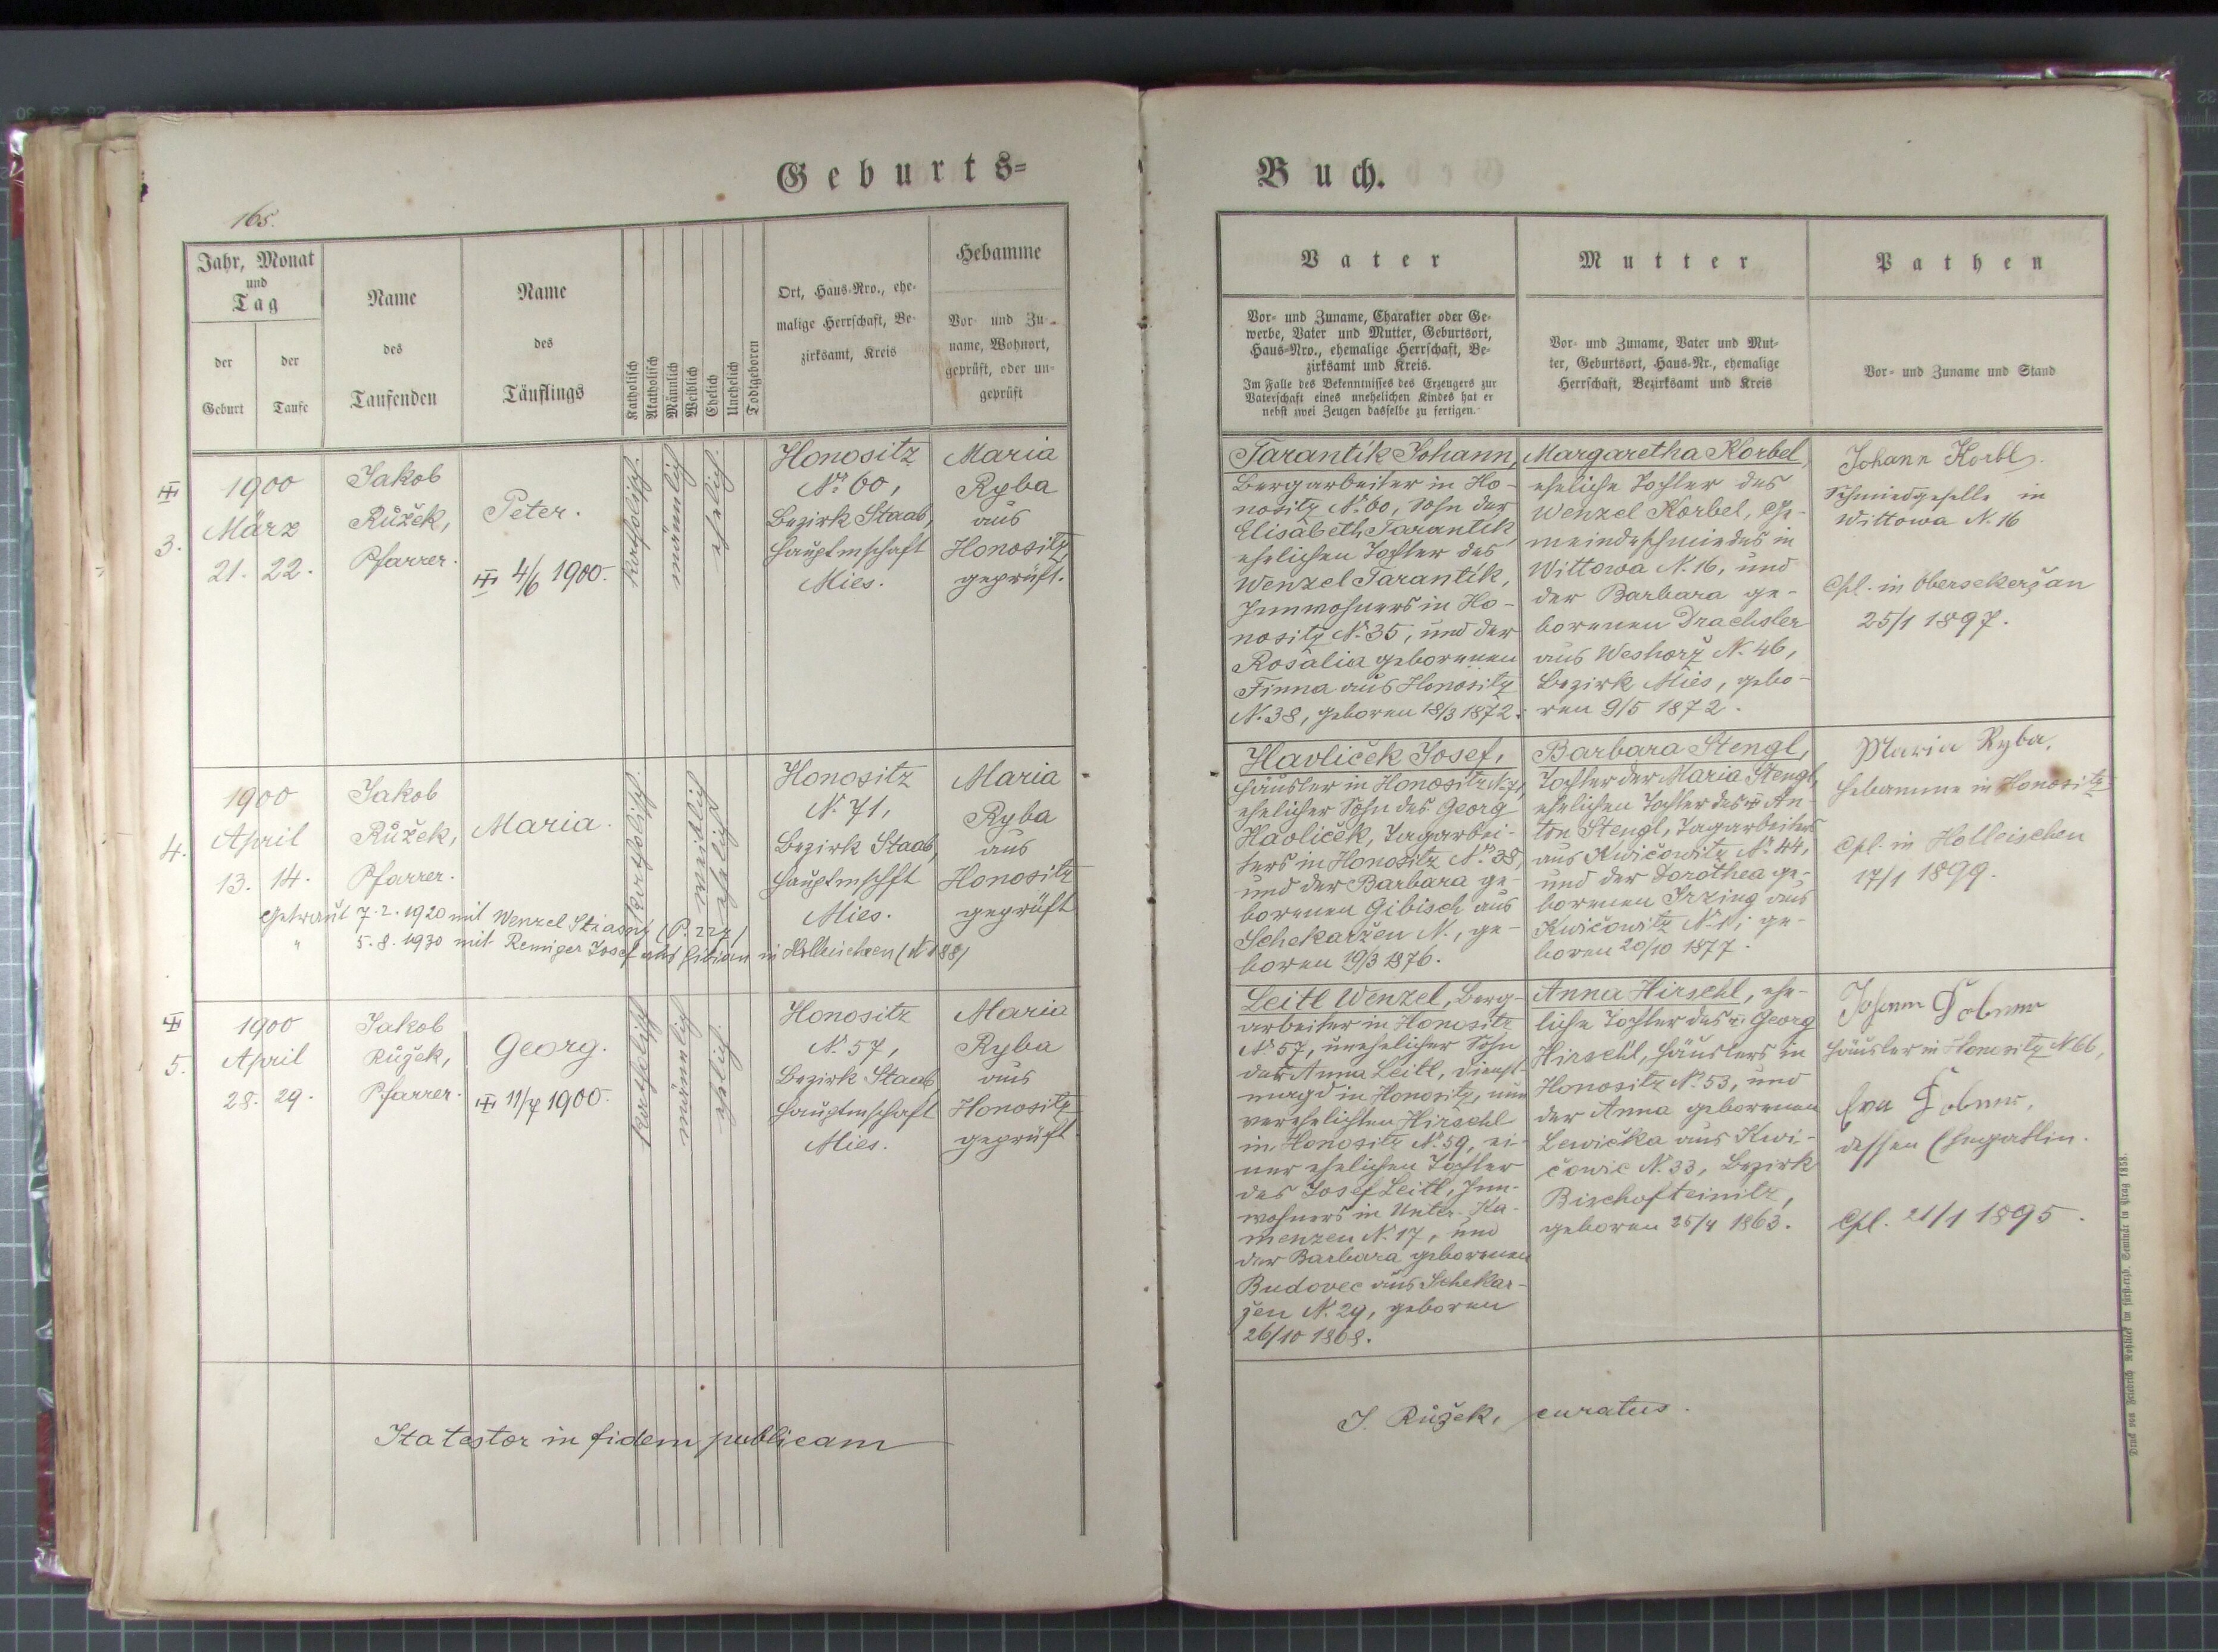 Geburts=
165.
Jahr, Monat
und
Tag
der
Geburt
der
Taufe
Name
des
Taufenden
Name
des
Täuflings
Katholisch
Akatholisch
Männlich
Weiblich
Ehelich
Unehelich
Todtgeboren
Ort, Haus-Nro., ehe-
malige Herrschaft, Be-
zirksamt, Kreis
Hebamme
Vor- und Zu-
name, Wohnort,
geprüft, oder un-
geprüft
3.
1900
März
21. 22.
Jakob
Růžek,
Pfarrer.
Peter.
4/6 1900.
katholisch.
männlich
ehelich.
Honositz
No. 60,
Bezirk Staab,
Hauptmschaft
Mies.
Maria
Ryba
aus
Honositz,
geprüft.
4.
1900
April
13. 14.
Jakob
Růžek,
Pfarrer.
Maria.
katholisch.
weiblich
ehelich
Honositz
N. 71,
Bezirk Staab,
Hauptmschft
Mies.
Maria
Ryba
aus
Honositz
geprüft
Getraut 7.2.1920 mit Wenzel
" 5.8.1930 mit Remiger Josef in Holleischen (N 188)
5.
1900
April
28. 29.
Jakob
Růžek,
Pfarrer.
Georg.
11/7 1900.
katholisch
männlich
ehelich.
Honositz
N. 57,
Bezirk Staab
Hauptmschaft
Mies.
Maria
Ryba
aus
Honositz
geprüft
Ita testor in fidem publicam
Buch.
Vater
Vor- und Zuname, Charakter oder Ge-
werbe, Vater und Mutter, Geburtsort,
Haus-Nro., ehemalige Herrschaft, Be-
zirksamt und Kreis.
Im Falle des Bekenntnisses des Erzeugers zur
Vaterschaft eines unehelichen Kindes hat er
nebst zwei Zeugen dasselbe zu fertigen.
Mutter
Vor- und Zuname, Vater und Mut-
ter, Geburtsort, Haus-Nr., ehemalige
Herrschaft, Bezirksamt und Kreis
Pathen
Vor- und Zuname und Stand
Tarantík Johann,
Bergarbeiter in Ho-
nositz No. 60, Sohn der
Elisabeth Tarantík
ehelichen Tochter des
Wenzel Tarantík,
Innwohners in Ho-
nositz No. 35, und der
Rosalia geborenen
Finna aus Honositz
N. 38, geboren 18/3 1872.
Margaretha Korbel,
eheliche Tochter des
Wenzel Korbel, Ge-
meindeschmiedes in
Wittowa N. 16, und
der Barbara ge-
borenen Drachsler
aus Weshorz N. 46,
Bezirk Mies, gebo-
ren 9/5 1872.
Johann Korbl.
Schmiedgeselle in
Wittowa N. 16
Cpl. in Obersekeržan
25/1 1897.
Havlíček Josef,
Häusler in Honositz N. 71,
ehelicher Sohn des Georg
Havlíček, Tagarbei-
ters in Honositz No. 38,
und der Barbara ge-
borenen Gibisch aus
Schekaržen N., ge-
boren 19/3 1876.
Barbara Stengl,
Tochter der Maria Stengl,
ehelichen Tochter des An-
ton Stengl, Tagarbeiters
aus Kwičowitz No. 44,
und der Dorothea ge-
borenen Irzing aus
Kwičowitz No. 1; ge-
boren 20/10 1877.
Maria Ryba,
Hebamme in Honositz
Cpl. in Holleischen
17/1 1899.
Leitl Wenzel, Berg-
arbeiter in Honositz
No. 57, unehelicher Sohn
der Anna Leitl, Dienst-
magd in Honositz, nun
verehelichten Hirschl
in Honositz No. 59, ei-
ner ehelichen Tochter
des Josef Leitl, Inn-
wohners in Unter-Ka-
menzen N. 17, und
der Barbara geborenen
Budovec aus Schekar-
žen N. 29, geboren
26/10 1868.
Anna Hirschl, ehe-
liche Tochter des Georg
Hirschl, Häuslers in
Honositz No. 53, und
der Anna geborenen
Lewička aus Kwi-
čowic N. 33, Bezirk
Bischofteinitz,
geboren 25/4 1863.
Johann
Häusler in Honositz N 66,
Eva
dessen Ehegattin.
Cpl. 21/1 1895.
J. Růžek, curatus.
Druck von Friedrich Rohliček im fürsterzb. Seminär in Prag 1858.